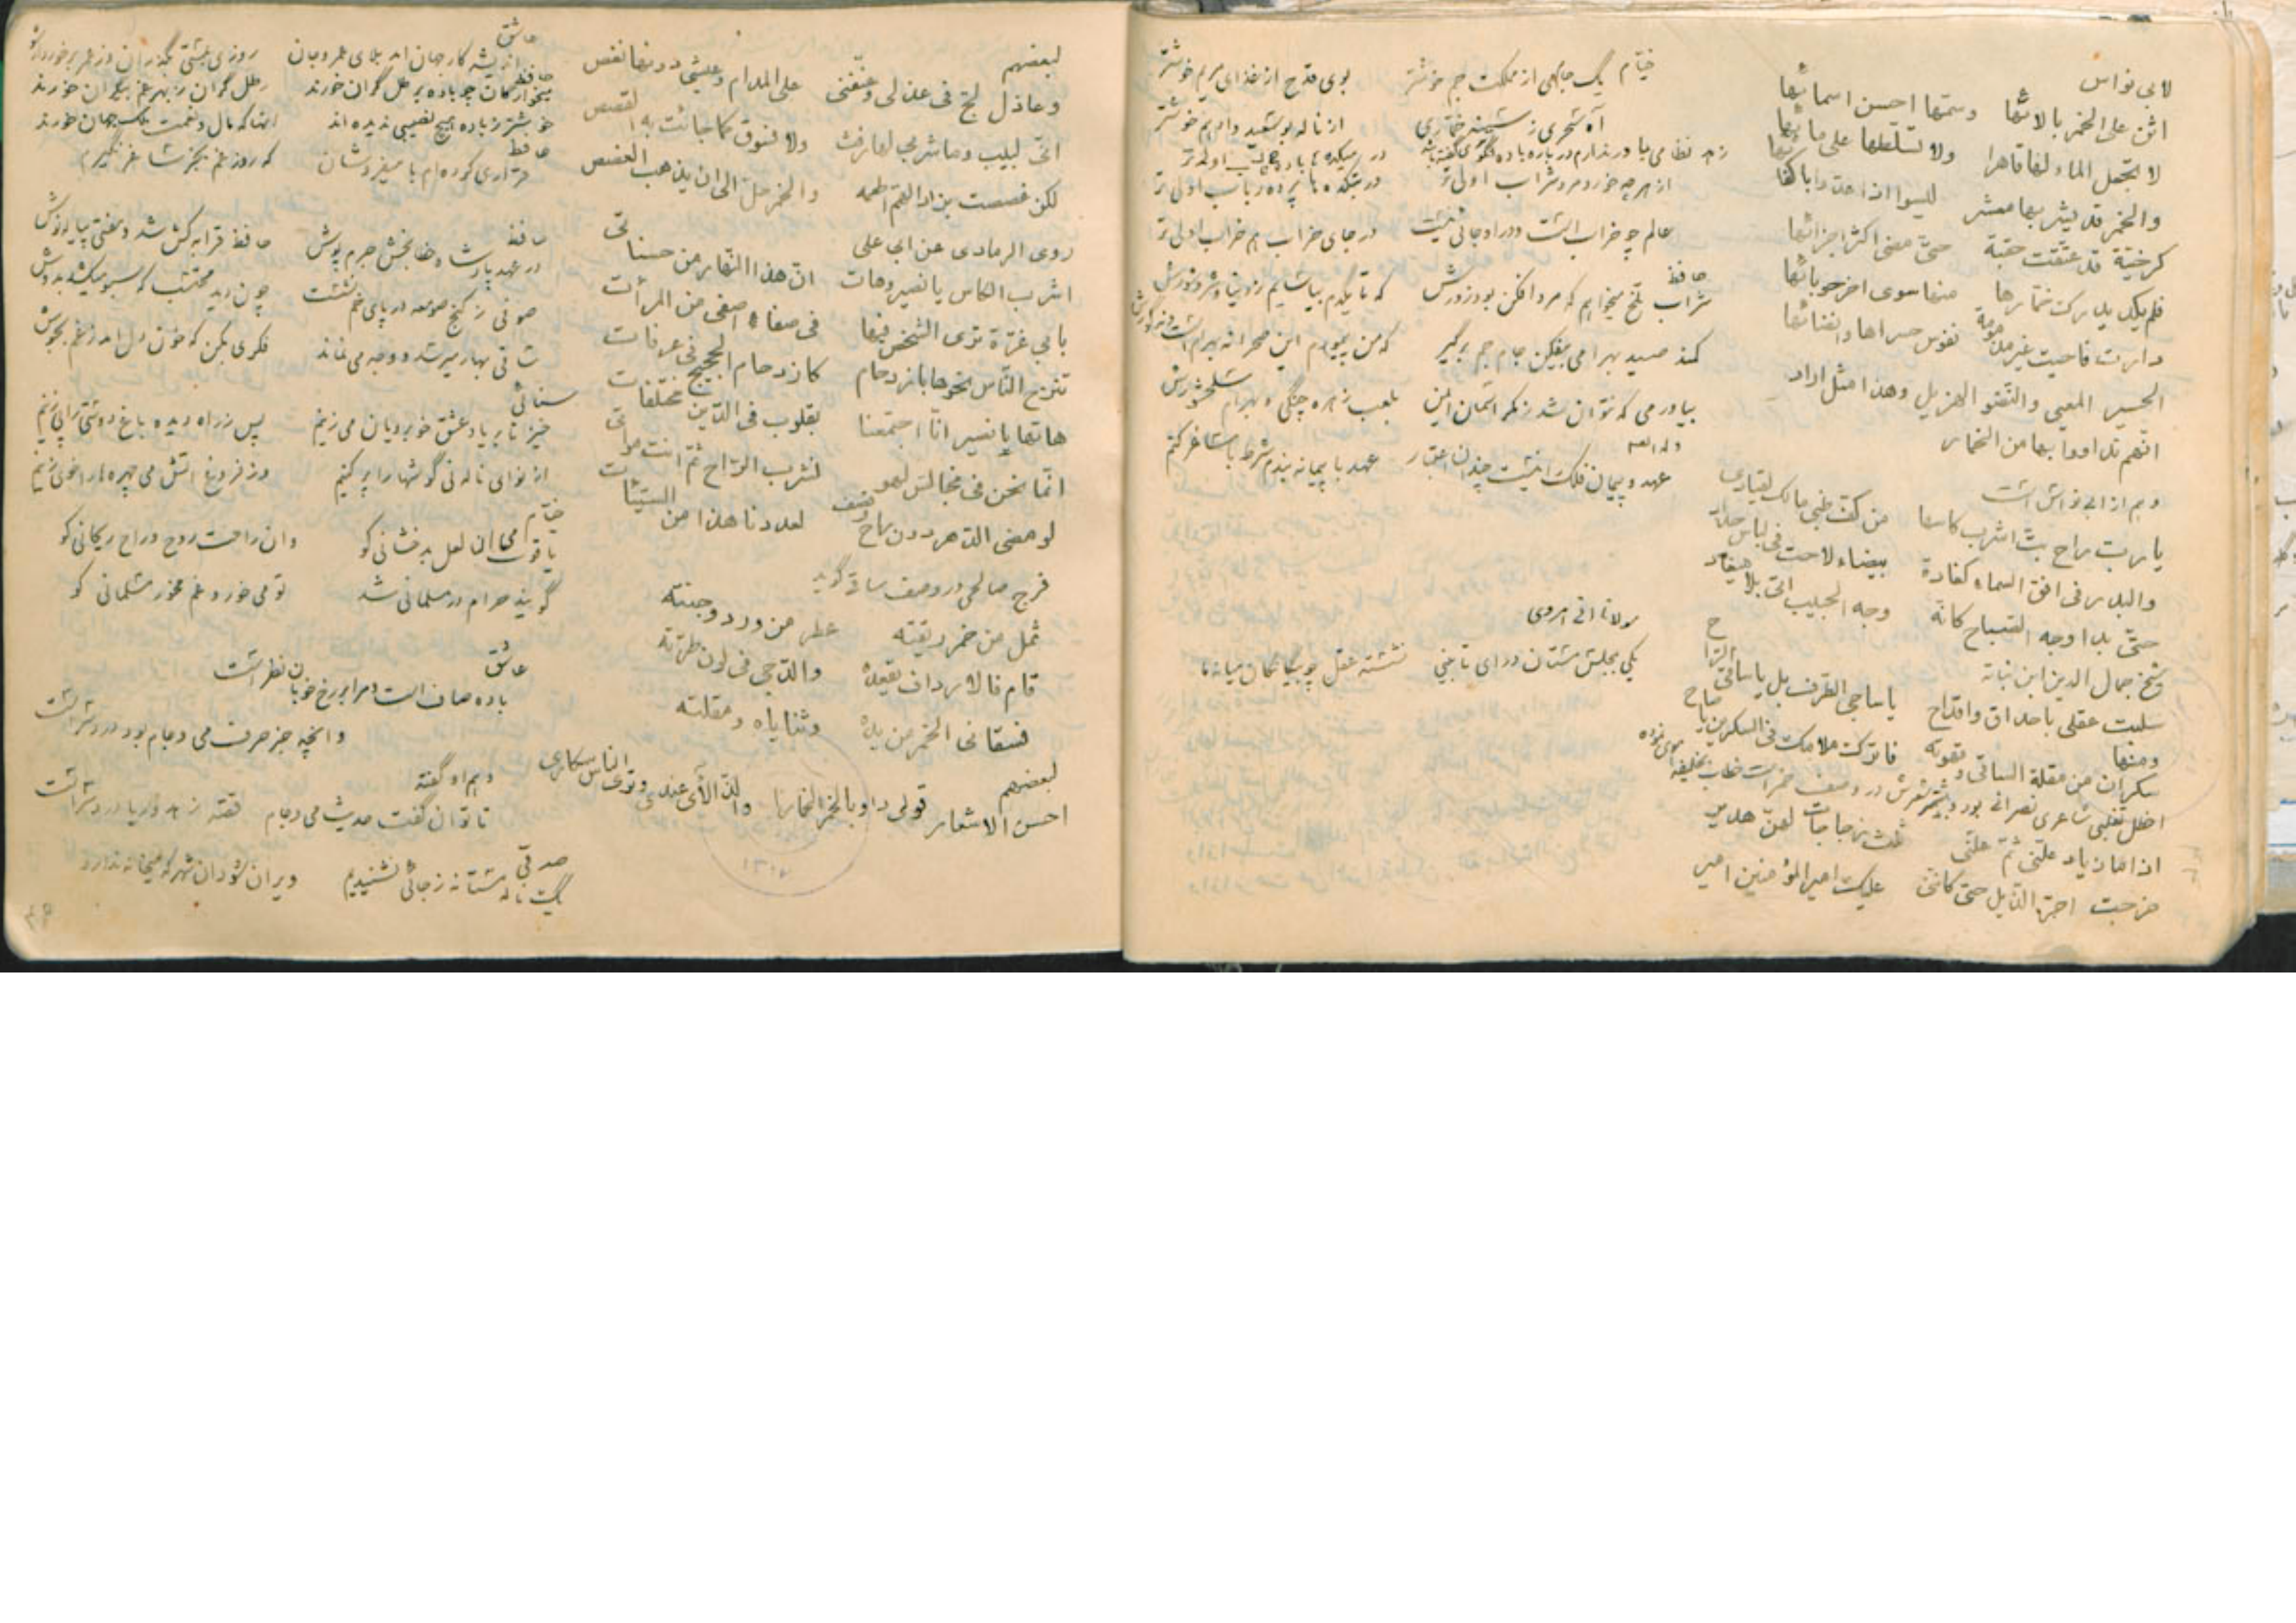 لابی نواس
اثن علی الخمر بالائها وسمها احسن اسمائها
لا تجعل الماء لها قاهرا ولا تسلطها علی مائها
والخمر قد یشربها معشر لیسوا اذا عدوا باکفائها
کرخیة قد عتقت حقبة حتی مضی اکثر اجزائها
فلم یکد یدرک خمارها منها سوی اخر حوبائها
دارت فاحیت غیر مذمومة نفوس حسراها وانضائها
الحسیر المعیی والنضو الهزیل وهذا مثل اراد
انهم تداووا بها من الخمار
وهم از ابی نواس است
یا رب راح بت اشرب کاسها من کف ظبی مالک لقیادی
والبدر فی افق السماء کغادة بیضاء لاحت فی لباس حداد
حتی بدا وجه الصباح کانه وجه الحبیب اتی بلا میعاد
شیخ جمال الدین ابن نباته
سلبت عقلی باحداق واقداح یا ساجی الطرف بل یا ساقی الراح
ومنها
سکران من مقلة الساقی وقهوته فاترک ملامک فی السکرین یا صاح
اخطل تغلبی شاعری نصرانی بود
اذا ما زیاد علنی ثم علنی ثلث زجاجات لهن هدیر
خرجت اجر الذیل حتی کاننی علیک امیر المؤمنین امیر
خیام
یک جامهی از مملکت جم خوشتر بوی قدح از غذای مریم خوشتر
آه سحری ز سینه خماری از ناله بوسعید وادهم خوشتر
از هر چه خورد مرد شراب اولی تر
در بتکده ها باده ناب اولی تر
عالم چو خراب است ودر او جائی نیست در جای خراب هم خراب اولی تر
حافظ
شراب تلخ میخواهم که مرد افکن بود زورش که تا یکدم بیاسایم ز دنیا وشر وشورش
کمند صید بهرامی بیفکن جام جم برگیر که من پیمودم این صحرا نه بهرام است ونه گورش
بیاور می که نتوان شد ز مکر اسمان ایمن بلعب زهره چنگی و بهرام سلحشورش
وله ایضا
عهد وپیمان فلک را نیست چندان اعتبار عهد با پیمانه بندم شرط با ساغر کنم
یکی بمجلس مستان درای تا بینی نشسته عقل چو بیگانگان میانه ما
لبعضهم
وعاذل لج فی عذلی وعنفنی علی المدام وعیشی دونها نغص
انی لبیب وما شربی لها رفث ولا فسوق کما جائت به القصص
لکن غصصت بزاد الهم اطعمه والخمر حل الی ان یذهب الغصص
روی الرمادی عن ابی علی
اشرب الکاس یا نصیر وهات ان هذا النهار من حسناتی
بابی غرة تری الشخص فیها فی صفاء اصفی من المرأت
تنزع الناس نحوها بازدحام کازدحام الحجیج فی عرفات
هاتها یا نصیر انا اجتمعنا بقلوب فی الدین مختلفات
انما نحن فی مجالس لهو نشرب الراح ثم انت مواتی
لو مضی الدهر دون راح وقصف لعددنا هذا من السیئات
فرج صالحی در وصف ساقی گوید
ثمل من خمر ریقته عطر من ورد وجنته
قام فالارداف تقعده والدجی فی لون طرته
فسقانی الخمر من یده وثنایاه ومقلته
لبعضهم
احسن الاشعار قولی داو بالخمر الخمارا
والذ الأی عندی وتری الناس سکاری
عاشق
روزی بعشق بگذران وز عمر برخوردار شو
حافظ
میخوارگان چو باده بر طل گران خورند رطل گران ز بهر غم بیکران خورند
خوشتر ز باده هیچ نصیبی ندیده اند انها که مال ونعمت ملک جهان خورند
حافظ
قراری کرده ام با میفروشان که روز غم بجز ساغر نگیرم
حافظ
در عهد پادشاه خطا بخش جرم پوش حافظ قرابه کش شد ومفتی پیاله نوش
صوفی ز کنج صومعه در پای خم نشست چون دید محتسب که سبو میکشد بدوش
ساقی بهار میرسد ووجه می نماند فکری بکن که خون دل امد ز غم بجوش
سنائی
خیز تا بر یاد عشق خوبرویان می زنیم
از نوای ناله نی گوشها را پر کنیم وز فروغ آتش می چهره ها را خوی زنیم
خیام
یاقوت می ان لعل بدخشانی کو وان راحت روح وراح ریحانی کو
گویند حرام در مسلمانی شد تو می خور وغم مخور مسلمانی کو
عاشق
باده صاف است ومرا بر رخ خوبان نظر است وانچه جز حرف می وجام بود دردسر است
وهم او گفته
تا توان گفت حدیث می وجام قصه زهد وریا دردسر است
صدقی
یک ناله مستانه ز جائی نشنیدیم ویران شود ان شهر که میخانه ندارد